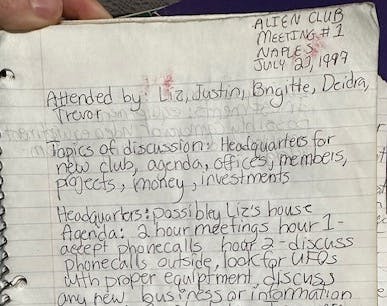 ALIEN CLUB
MEETING #1
NAPLES
JULY 27, 1997
Attended by: Liz, Justin, Brigitte, Deidra,
Trevor
Topics of discussion: Headquarters for
new club, agenda, offices, members,
projects, money, investments
Headquarters: possibley Liz's house
Agenda: 2 hour meetings hour 1-
accept phonecalls hour 2-discuss
phonecalls outside, look for UFOs
with proper equiptment, discuss
any new business or information